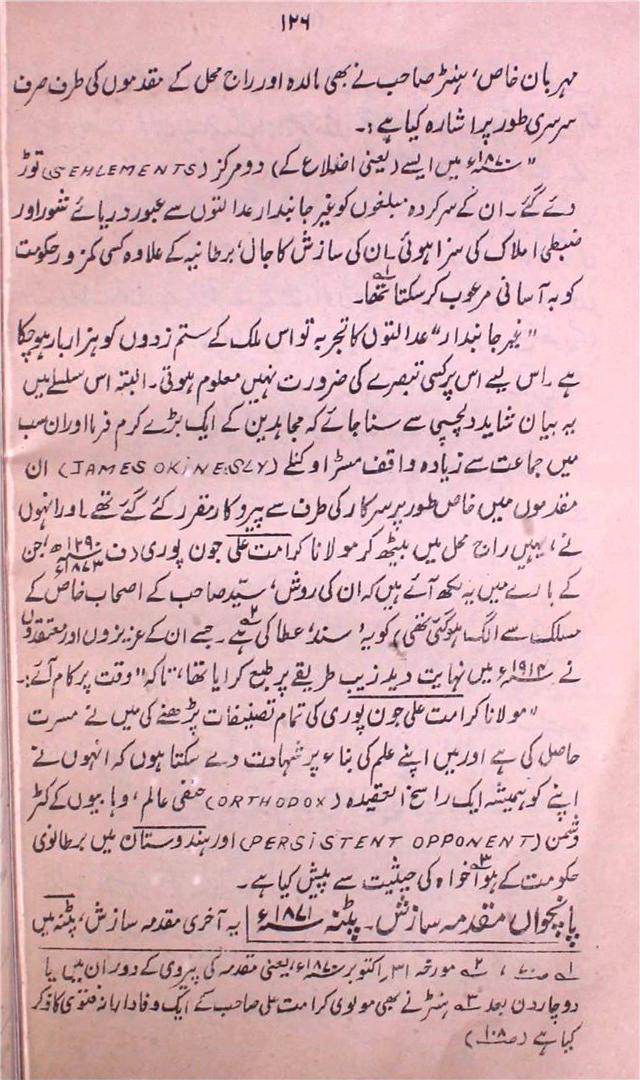 ۱۲۶
مہربان خاص، ہنٹر صاحب نے بھی مالدہ اور راج محل کے مقدموں کی طرف صرف
سرسری طور پر اشارہ کیا ہے:۔
"۱۸۷۰ء میں ایسے (یعنی اضلاع کے) دو مرکز (SEHLEMENTS) توڑ
دئے گئے۔ ان کے سرکردہ مبلغوں کو غیر جانبدار عدالتوں سے عبور دریائے شور اور
ضبطی املاک کی سزا ہوئی۔ ان کی سازش کا جال، برطانیہ کے علاوہ کسی کمزور حکومت
کو بہ آسانی مرعوب کر سکتا تھا۔ ۱؎
"غیر جانبدار" عدالتوں کا تجربہ تو اس ملک کے ستم زدوں کو ہزار بار ہو چکا
ہے۔ اس لیے اس پر کسی تبصرے کی ضرورت نہیں معلوم ہوتی۔ البتہ اس سلسلے میں
یہ بیان شاید دلچسپی سے سنا جائے کہ مجاہدین کے ایک بڑے کرم فرما اور ان سب
میں جماعت سے زیادہ واقف مسٹر اوکنلے (JAMES OKINESLY) ان
مقدموں میں خاص طور پر سرکار کی طرف سے پیروکار مقرر کئے گئے تھے۔ اور انہوں
نے، یہیں راج محل میں بیٹھ کر مولانا کرامت علی جون پوری (ف ۱۲۹۰ھ ۱۸۷۳ء، جن
کے بارے میں یہ لکھ آئے ہیں کہ ان کی روش، سیّد صاحب کے اصحاب خاص کے
مسلک سے الگ ہو گئی تھی) کو یہ 'سند' عطا کی ۲؎ ہے۔ جسے ان کے عزیزوں اور معتقدوں
نے ۱۹۱۴ء میں نہایت دیدہ زیب طریقے پر طبع کرایا تھا، تاکہ "وقت پر کام آئے:۔
"مولانا کرامت علی جون پوری کی تمام تصنیفات پڑھنے کی میں نے مسرت
حاصل کی ہے اور میں اپنے علم کی بناء پر شہادت دے سکتا ہوں کہ انہوں نے
اپنے کو ہمیشہ ایک راسخ العقیدہ (ORTHODOX) حنفی عالم، وہابیوں کے کٹر
دشمن (PERSISTENT OPPONENT) اور ہندوستان میں برطانوی
حکومت کے ہوا خواہ ۳؎ کی حیثیت سے پیش کیا ہے۔
پانچواں مقدمہ سازش۔ پٹنہ ۱۸۷۱ء یہ آخری مقدمہ سازش، پٹنہ میں
۱؎ ۲؎ مورخہ ۳۱؍ اکتوبر ۱۸۷۰ء، یعنی مقدمہ کی پیروی کے دوران میں یا
دو چار دن بعد ۳؎ ہنٹر نے بھی مولوی کرامت علی صاحب کے ایک وفادارانہ فتویٰ کا ذکر
کیا ہے (ص ۱۰۸)